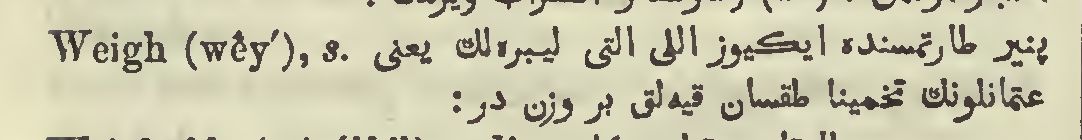 Weigh (wêy′), s. پنیر طارتمسنده ایکیوز اللی التی لیبره‌لك یعنی
عثمانلونك تخمینا طقسان قیه‌لق بر وزن در :